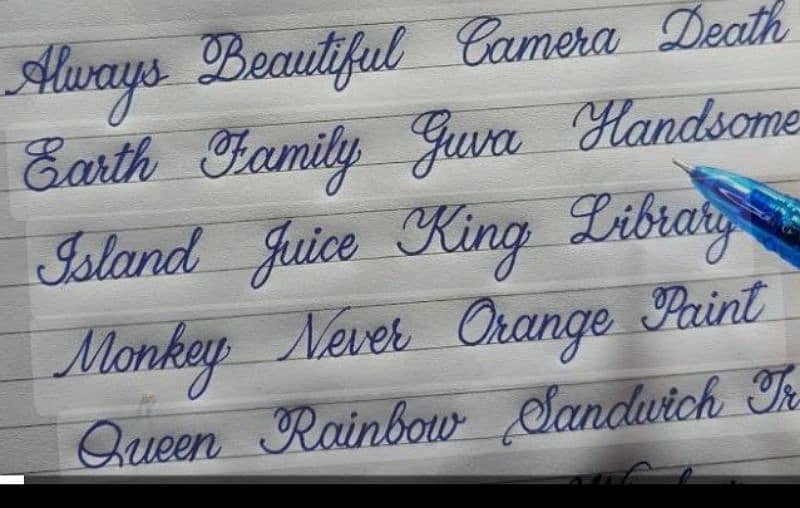 Always Beautiful Camera Death
Earth Family Guva Handsome
Island Juice King Library
Monkey Never Orange Paint
Queen Rainbow Sandwich Tr